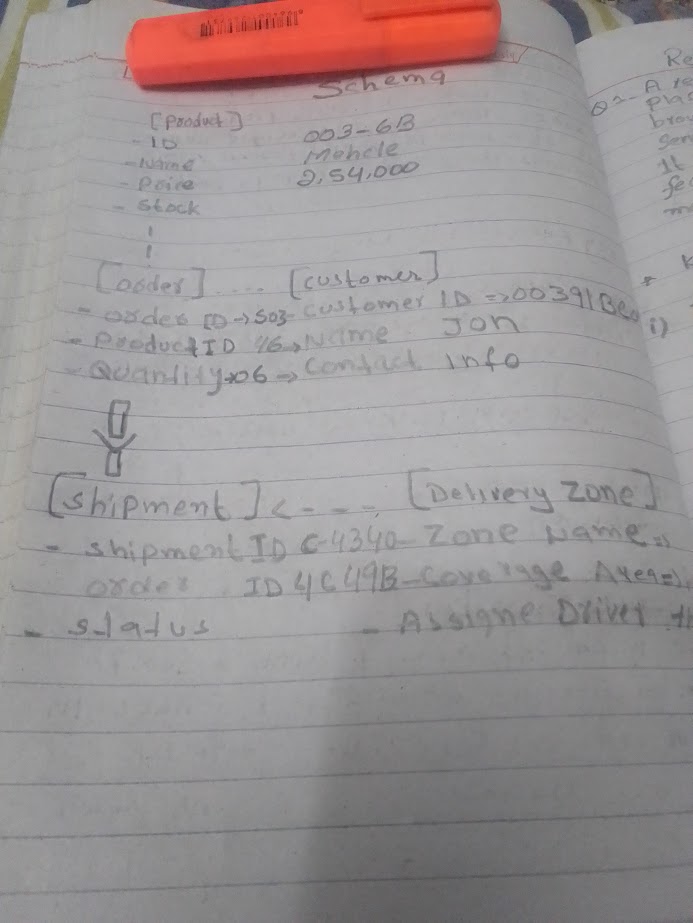 Schema
[Product]
- ID 003-6B
- Name
- Price 2,54,000
- Stock
[order] .... [customer]
- order ID → 503- customer ID => 00391Be
- Product ID 46 → Name Jon
- Quantity → 06 → Contact Info
[Shipment] <- - - [Delivery Zone]
- Shipment ID C-4340- Zone Name =>
order ID 4C49B - Coverage Area =>
- status - Assigne Driver
Re
Q2- A
pla
brow
It
fe
i)